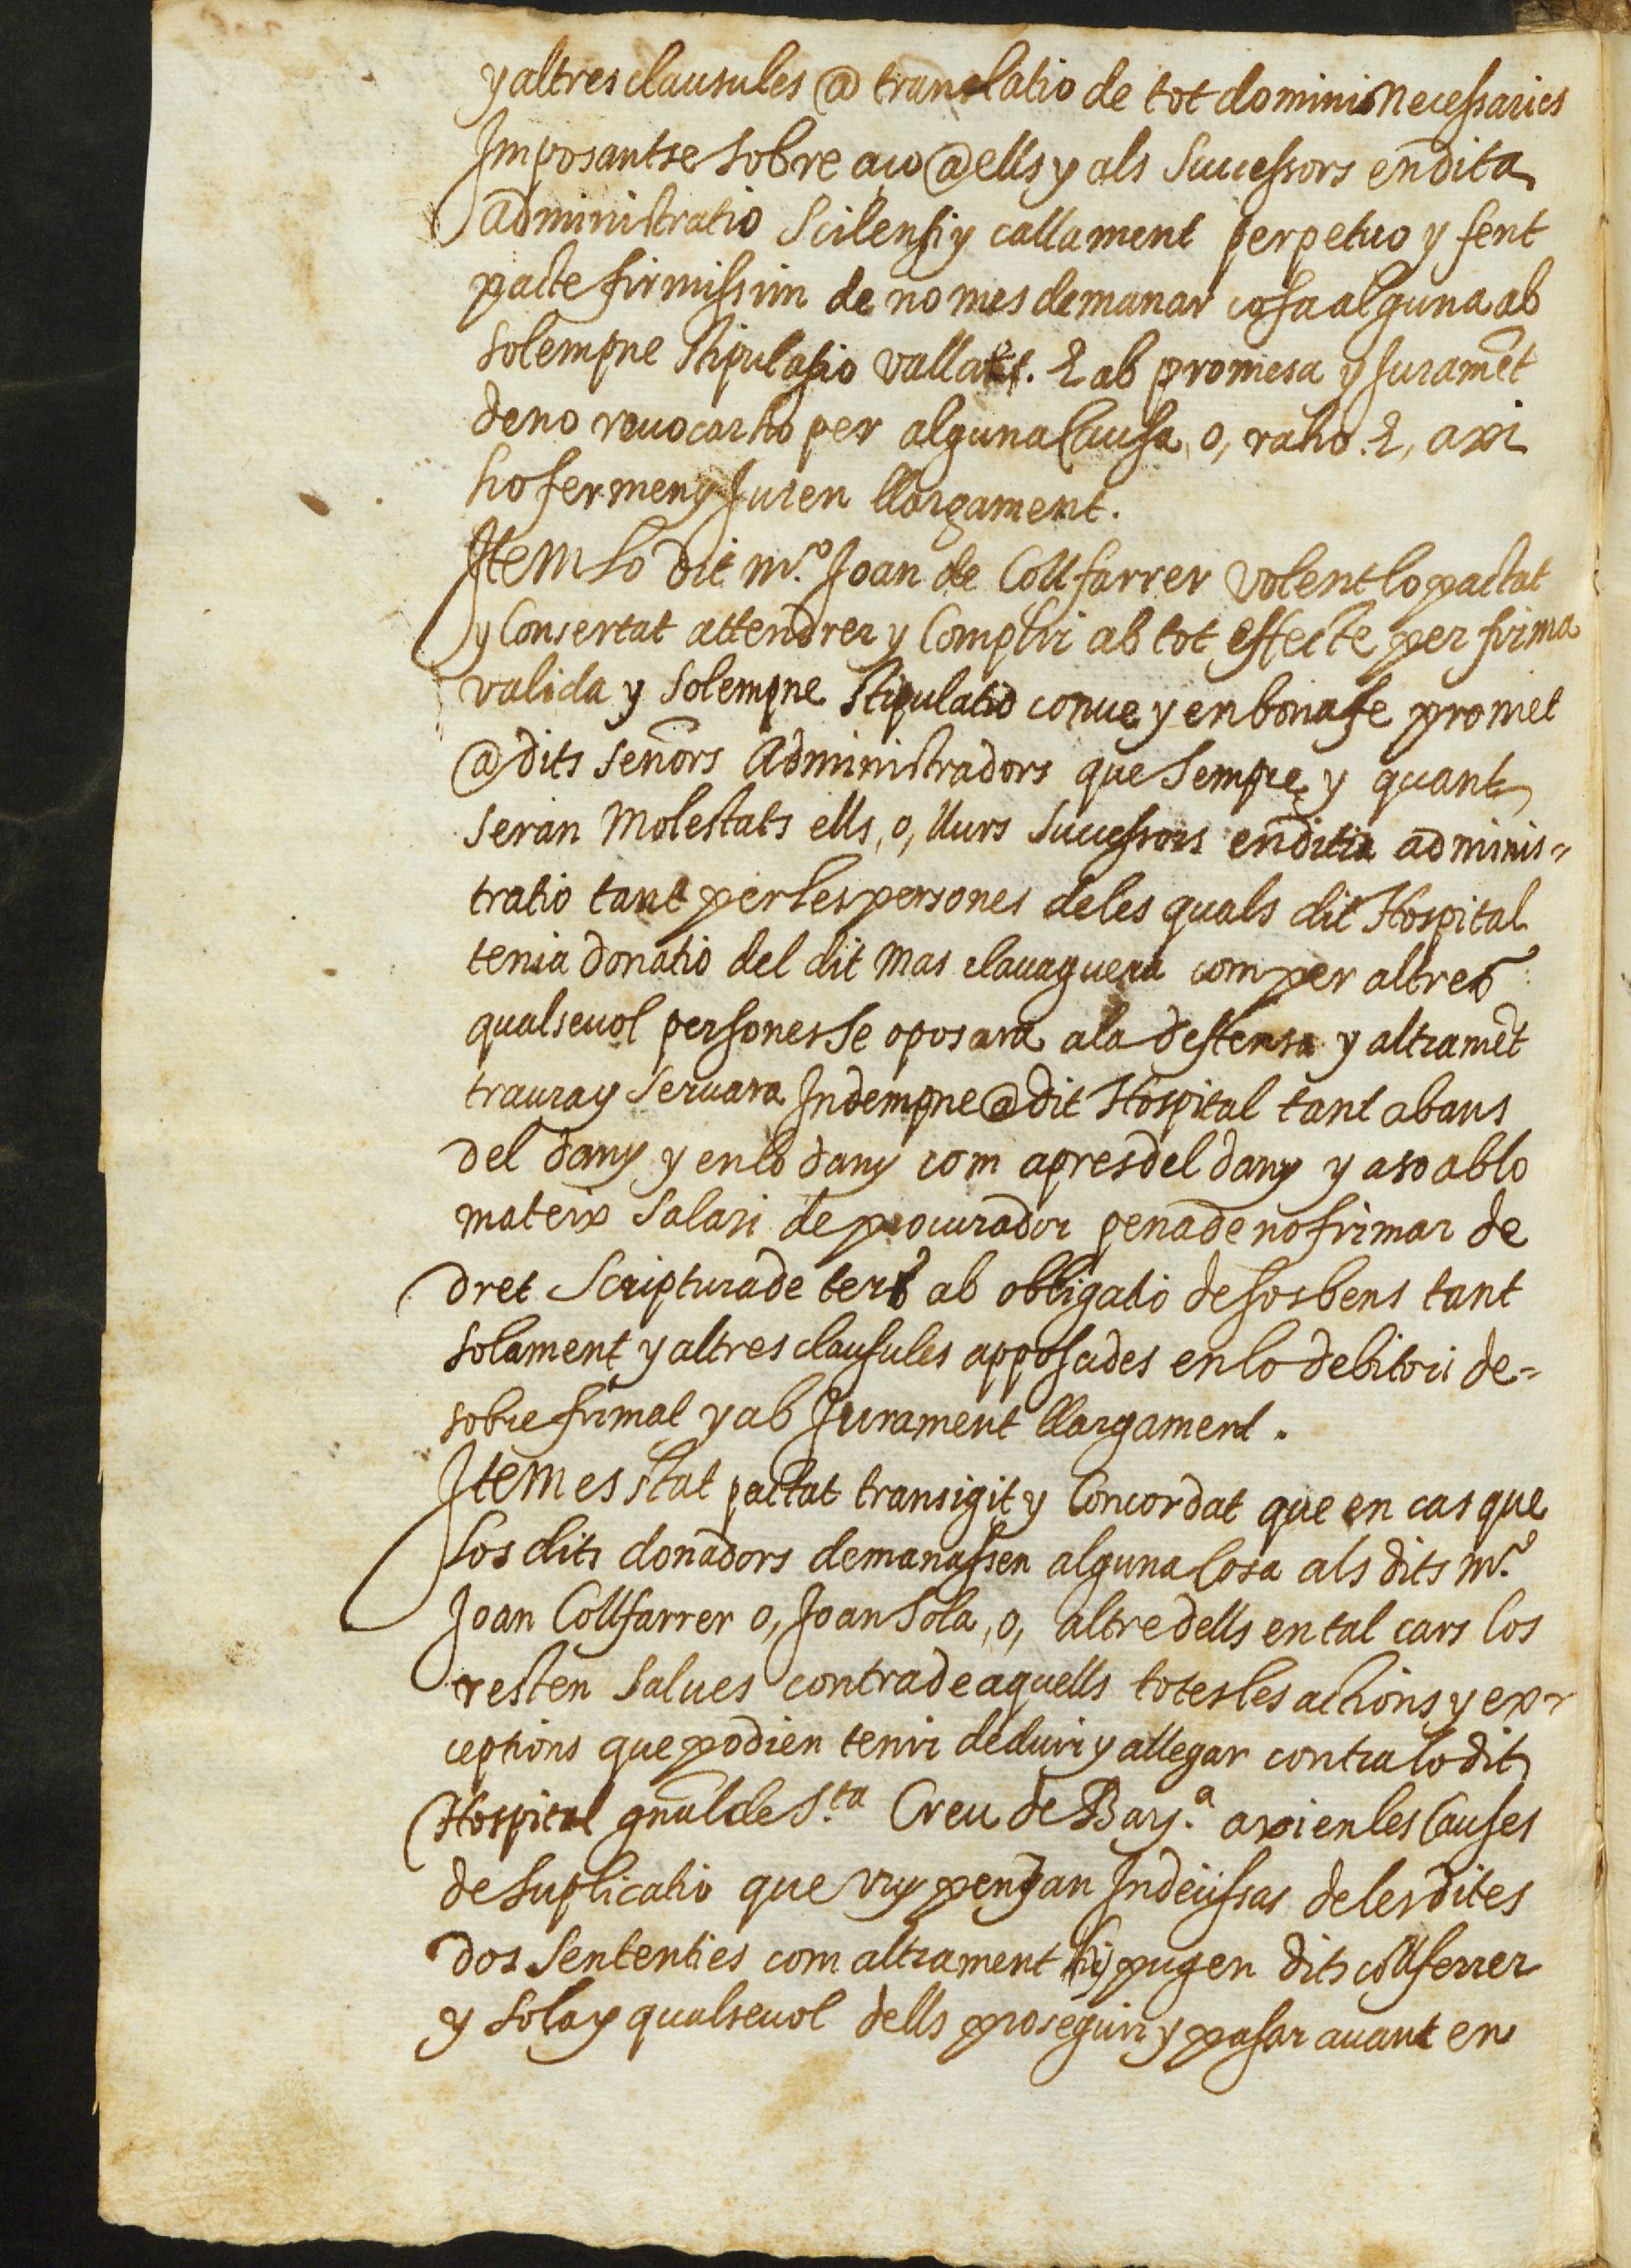 y altres clausules @ translatio de tot domini Necessaries
Imposantse sobre aço @ ells y als successors en dita
administratio scilensi y callament perpetuo y fent
pacte firmissim de no mes demanar cosa alguna ab
solempne stipulatio vallat. E ab promesa y juramēt
de no revocarho per alguna causa, o, raho. E, axi
ho fermen y juren llargament.
Item lo dit m.º Joan de Collfarrer volent lo pactat
y Consertat attendrer y Complir ab tot effecte per firma
valida y solempne stipulatio conve y en bona fe promet
@ dits señors Administradors que sempre, y quant
seran Molestats ells, o, llurs successors en dita adminis=
tratio tant per les persones de les quals dit Hospital
tenia donatio del dit Mas clavaguera com per altres
qualsevol persones se oposara a la deffensa y altramēt
traura y servara Indempne @ dit Hospital tant abans
del dany y en lo dany com apres del dany y aso ab lo
mateix salari de procurador pena de no frimar de
dret Scriptura de terç ab obligatio de sos bens tant
solament y altres clausules apposades en lo debitori de=
sobre frimat y ab Jurament llargament.
Item es stat pactat transigit y Concordat que en cas que
los dits donadors demanassen alguna Cosa als dits m.º
Joan Collfarrer o, Joan Sola, o, altre dells en tal cars los
resten salves contra de aquells totes les actions y ex-
ceptions que podien tenir deduir y allegar contra lo dit
Hospital gñal de S.ta Creu de Barç.a axi en les Causes
de suplicatio que vuy penjan Indeçissas de les dites
dos sententies com altrament hi pugen dits collferrer
y sola y qualsevol dells proseguir y pasar avant en